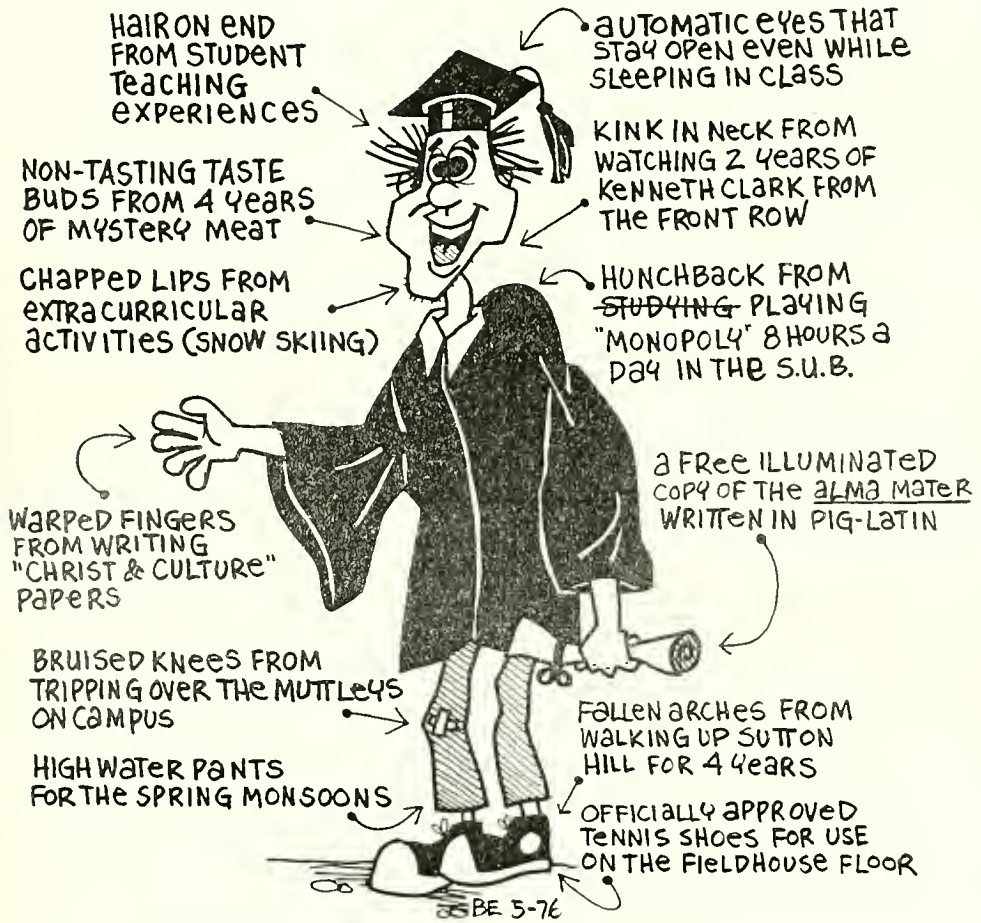 HAIR ON END
FROM STUDENT
TEACHING
EXPERIENCES
AUTOMATIC EYES THAT
STAY OPEN EVEN WHILE
SLEEPING IN CLASS
NON-TASTING TASTE
BUDS FROM 4 YEARS
OF MYSTERY MEAT
KINK IN NECK FROM
WATCHING 2 YEARS OF
KENNETH CLARK FROM
THE FRONT ROW
CHAPPED LIPS FROM
EXTRACURRICULAR
ACTIVITIES (SNOW SKIING)
HUNCHBACK FROM
STUDYING PLAYING
"MONOPOLY" 8 HOURS A
DAY IN THE S.U.B.
WARPED FINGERS
FROM WRITING
"CHRIST & CULTURE"
PAPERS
A FREE ILLUMINATED
COPY OF THE ALMA MATER
WRITTEN IN PIG-LATIN
BRUISED KNEES FROM
TRIPPING OVER THE MUTTLEYS
ON CAMPUS
HIGH WATER PANTS
FOR THE SPRING MONSOONS
FALLEN ARCHES FROM
WALKING UP SUTTON
HILL FOR 4 YEARS
OFFICIALLY APPROVED
TENNIS SHOES FOR USE
ON THE FIELDHOUSE FLOOR
BE 5-76